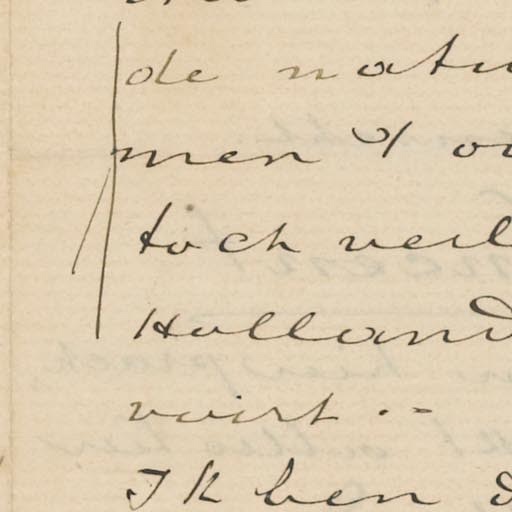 de natu
men & o
toch veel
Holland
voirt . -
Ik ben d